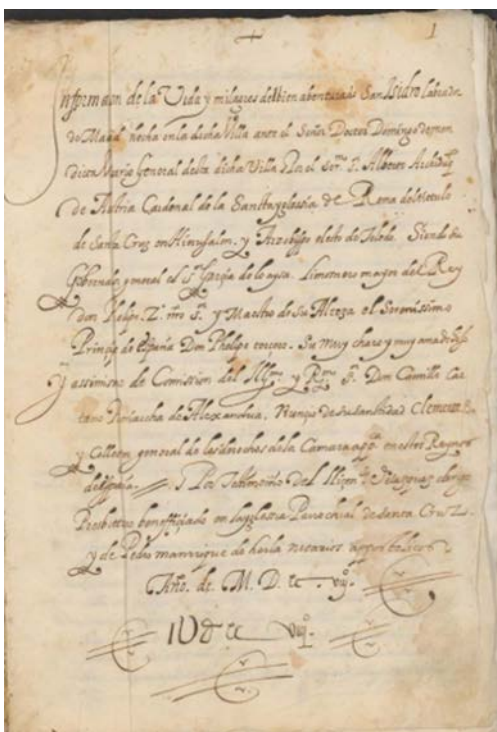 1
Informaçion de la Vida y milagros del bien abenturado San Isidro labrador
de Madrid hecha en la dicha Villa ante el Señor Doctor Domingo de men
diçu Vicario General desta dicha Villa Por el sermo. P. Alberto Archidq
de Austria Cardenal de la Sancta yglessia de Roma del titulo
de Sancta Cruz en Hierusalen. y Arzobispo electo de Toledo. Siendo su
Gobernador general el sr. Garçia de loaysa. Limosnero mayor del Rey
don Felipe. 2º. nro sr. y Maestro de su Alteza el Serenissimo
Prinçipe de España Don Phelipe terçero. su muy charo y muy amado hijo
y assimismo de Comission del Illmo. y Rmo. sr. Don Camillo Cae
tano Patriarcha de Alexandria. Nunçio de su santidad Clemente 8
y Collector general de los derechos de la Camara appca. en estos Reynos
de españa. Por Testimonio del liçendo. clerigo
Presbitero benefiçiado en la yglesia Parrochial de Santa Cruz
y de Pedro manrrique de notarios appostolicos
Año. de. M. D.